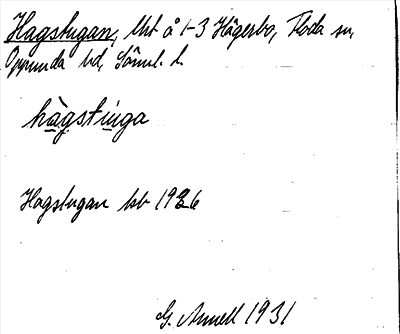 Hagstugan, lht å 1-3 Hägerbo, Floda sn,
Oppunda hd, Söml. l.
hàgstinga
Hagstugan hb 1926
G. Annell 1931